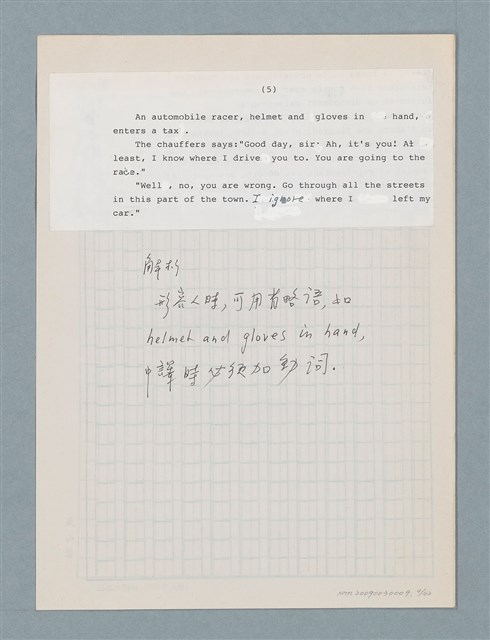 (5)
An automobile racer, helmet and gloves in hand,
enters a tax .
The chauffers says:"Good day, sir. Ah, it's you! At
least, I know where I drive you to. You are going to the
race."
"Well , no, you are wrong. Go through all the streets
in this part of the town. I ignore where I left my
car."
解析
形容人時,可用省略語,如
helmet and gloves in hand,
中譯時必須加動詞.